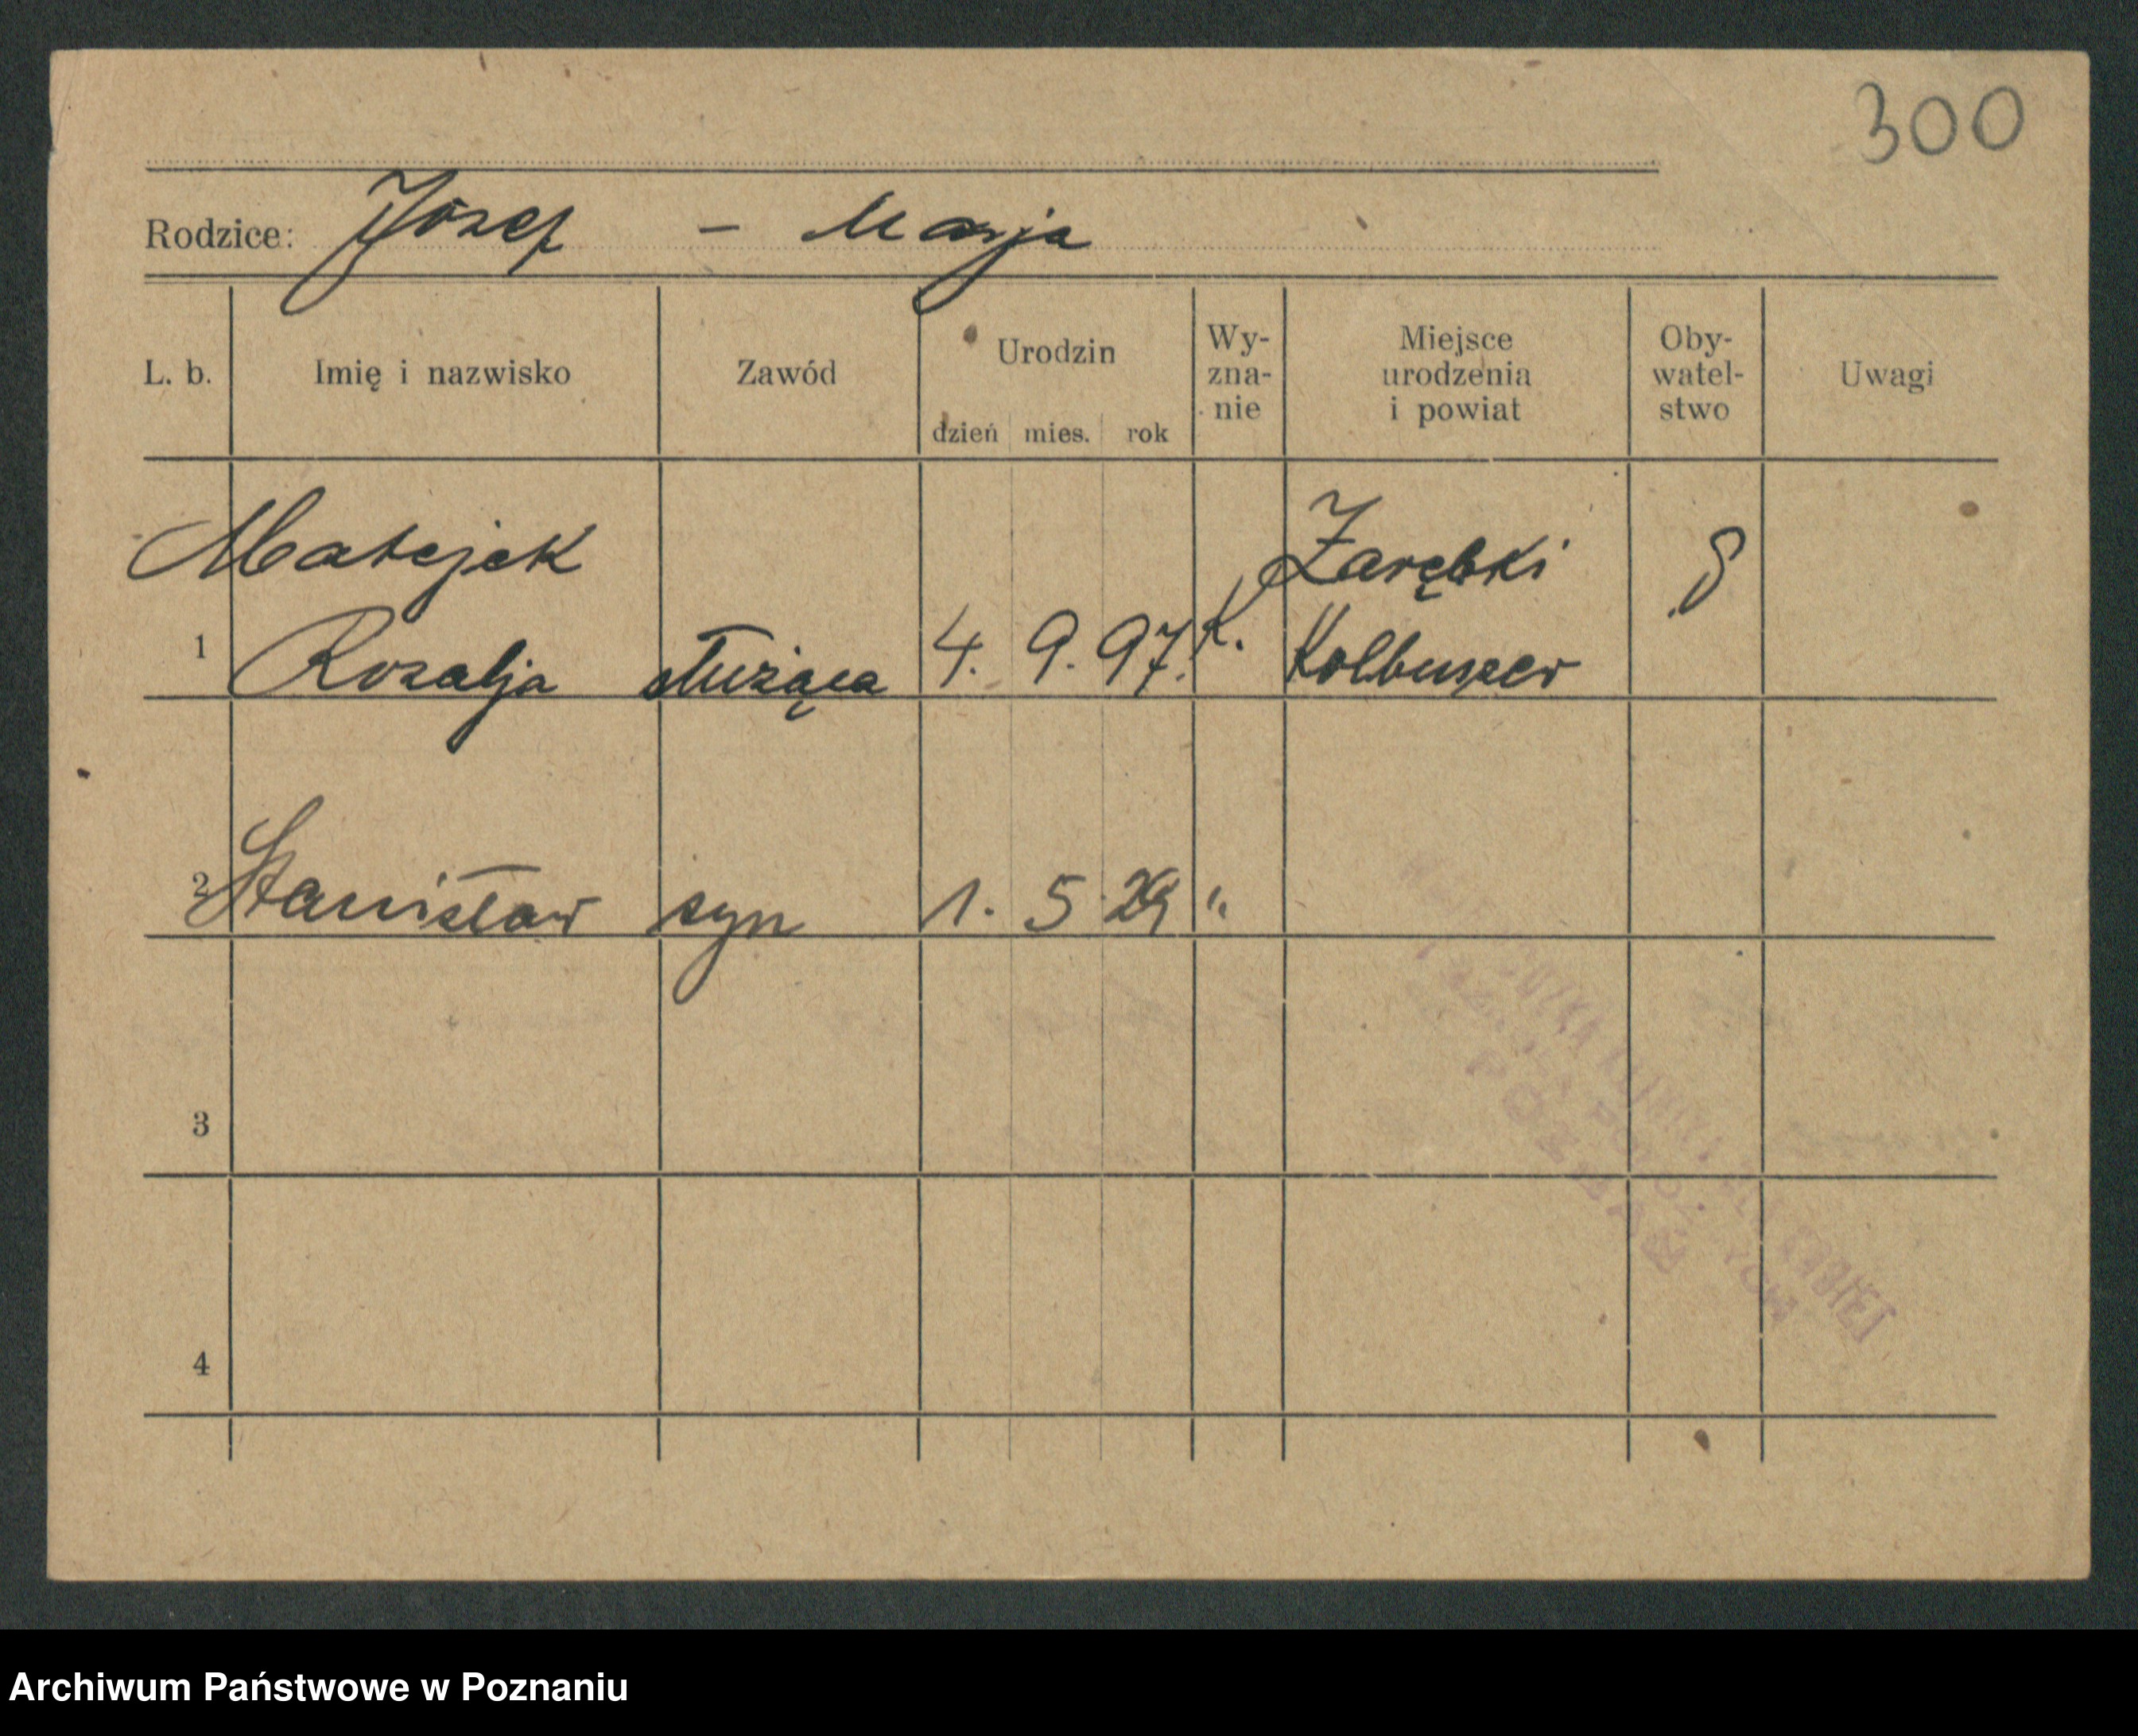 300
Rodzice: Józef - Marja
L. b. Imię i nazwisko Zawód Urodzin dzień mies. rok Wy-zna-nie Miejsce urodzenia i powiat Oby-watel-stwo Uwagi
Matejek Zarębki
1 Rozalja służąca 4. 9. 97. K. Kolbuszew
2 Stanisław syn 1. 5 29 "
3
4
POZNAŃ
Archiwum Państwowe w Poznaniu